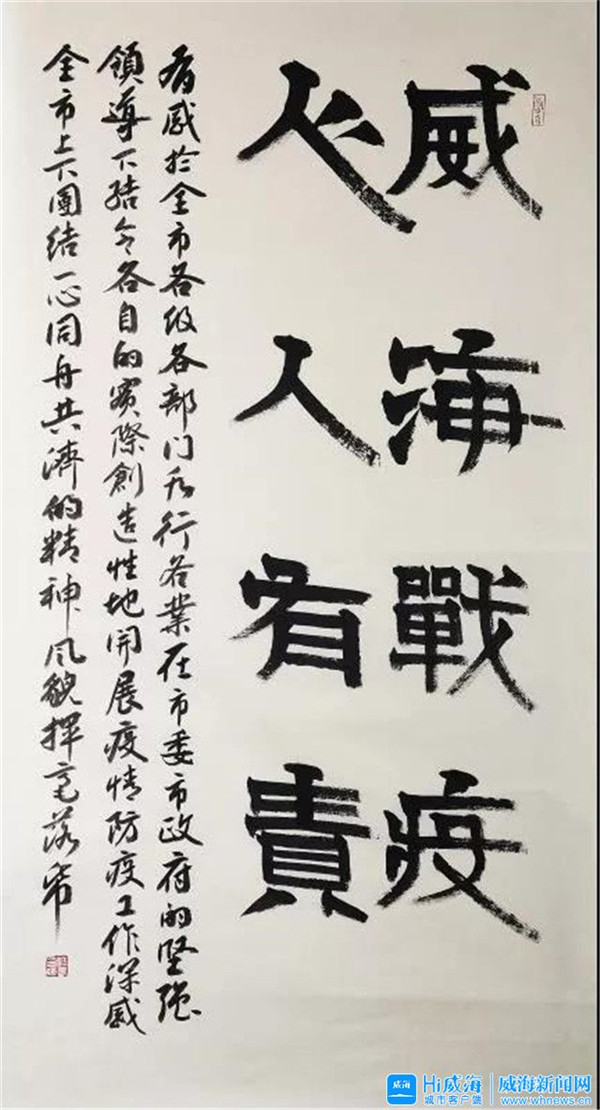 威海戰疫
人人有責
有感於全市各级各部门各行各業在市委市政府的坚强
領導下结合各自的實際創造性地開展疫情防疫工作深感
全市上下團结一心同舟共濟的精神风貌揮毫落帋
威海
Hi威海
城市客户端
威海新闻网
www.whnews.cn